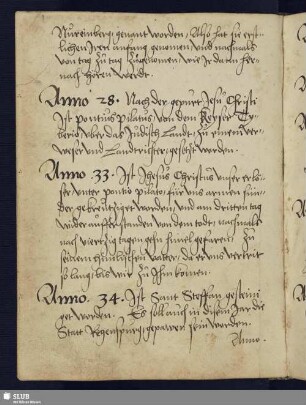 Nüremberg genant worden, Also hat es erst-
lichen Iren anfang genomen, und nachmals
von tag zu tag zugenomen, wie Ir dann her-
nach hören werdt.
Anno 28. Nach der gepurt Jesu Christi
Ist pontius pilatus von dem Keyser Ty-
berio uber das Jüdisch Landt, zu einem ver-
weser und Landtrichter gesetzt worden.
Anno 33. Ist Jhesus Christus unser erlö-
ser unter pontio pilato, für uns armen sün-
der gekreutziget worden, und am dritten tag
wider aufferstanden von dem todt, nachmals
nach viertzig tagen gehn himel gefaren, zu
seinem himlischen vatter, da er uns vertrit
so lang bis wir zu Jhm komen.
Anno. 34. Ist Sant Steffan gesteini
get worden. Es soll auch in disem Jar die
Statt Regenspurg gepawet sein worden.
Anno.
SLUB